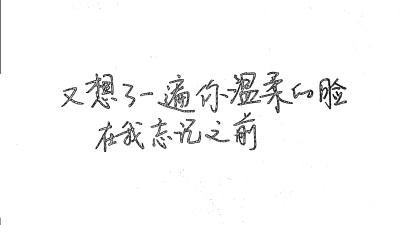 又想了一遍你温柔的脸
在我忘记之前